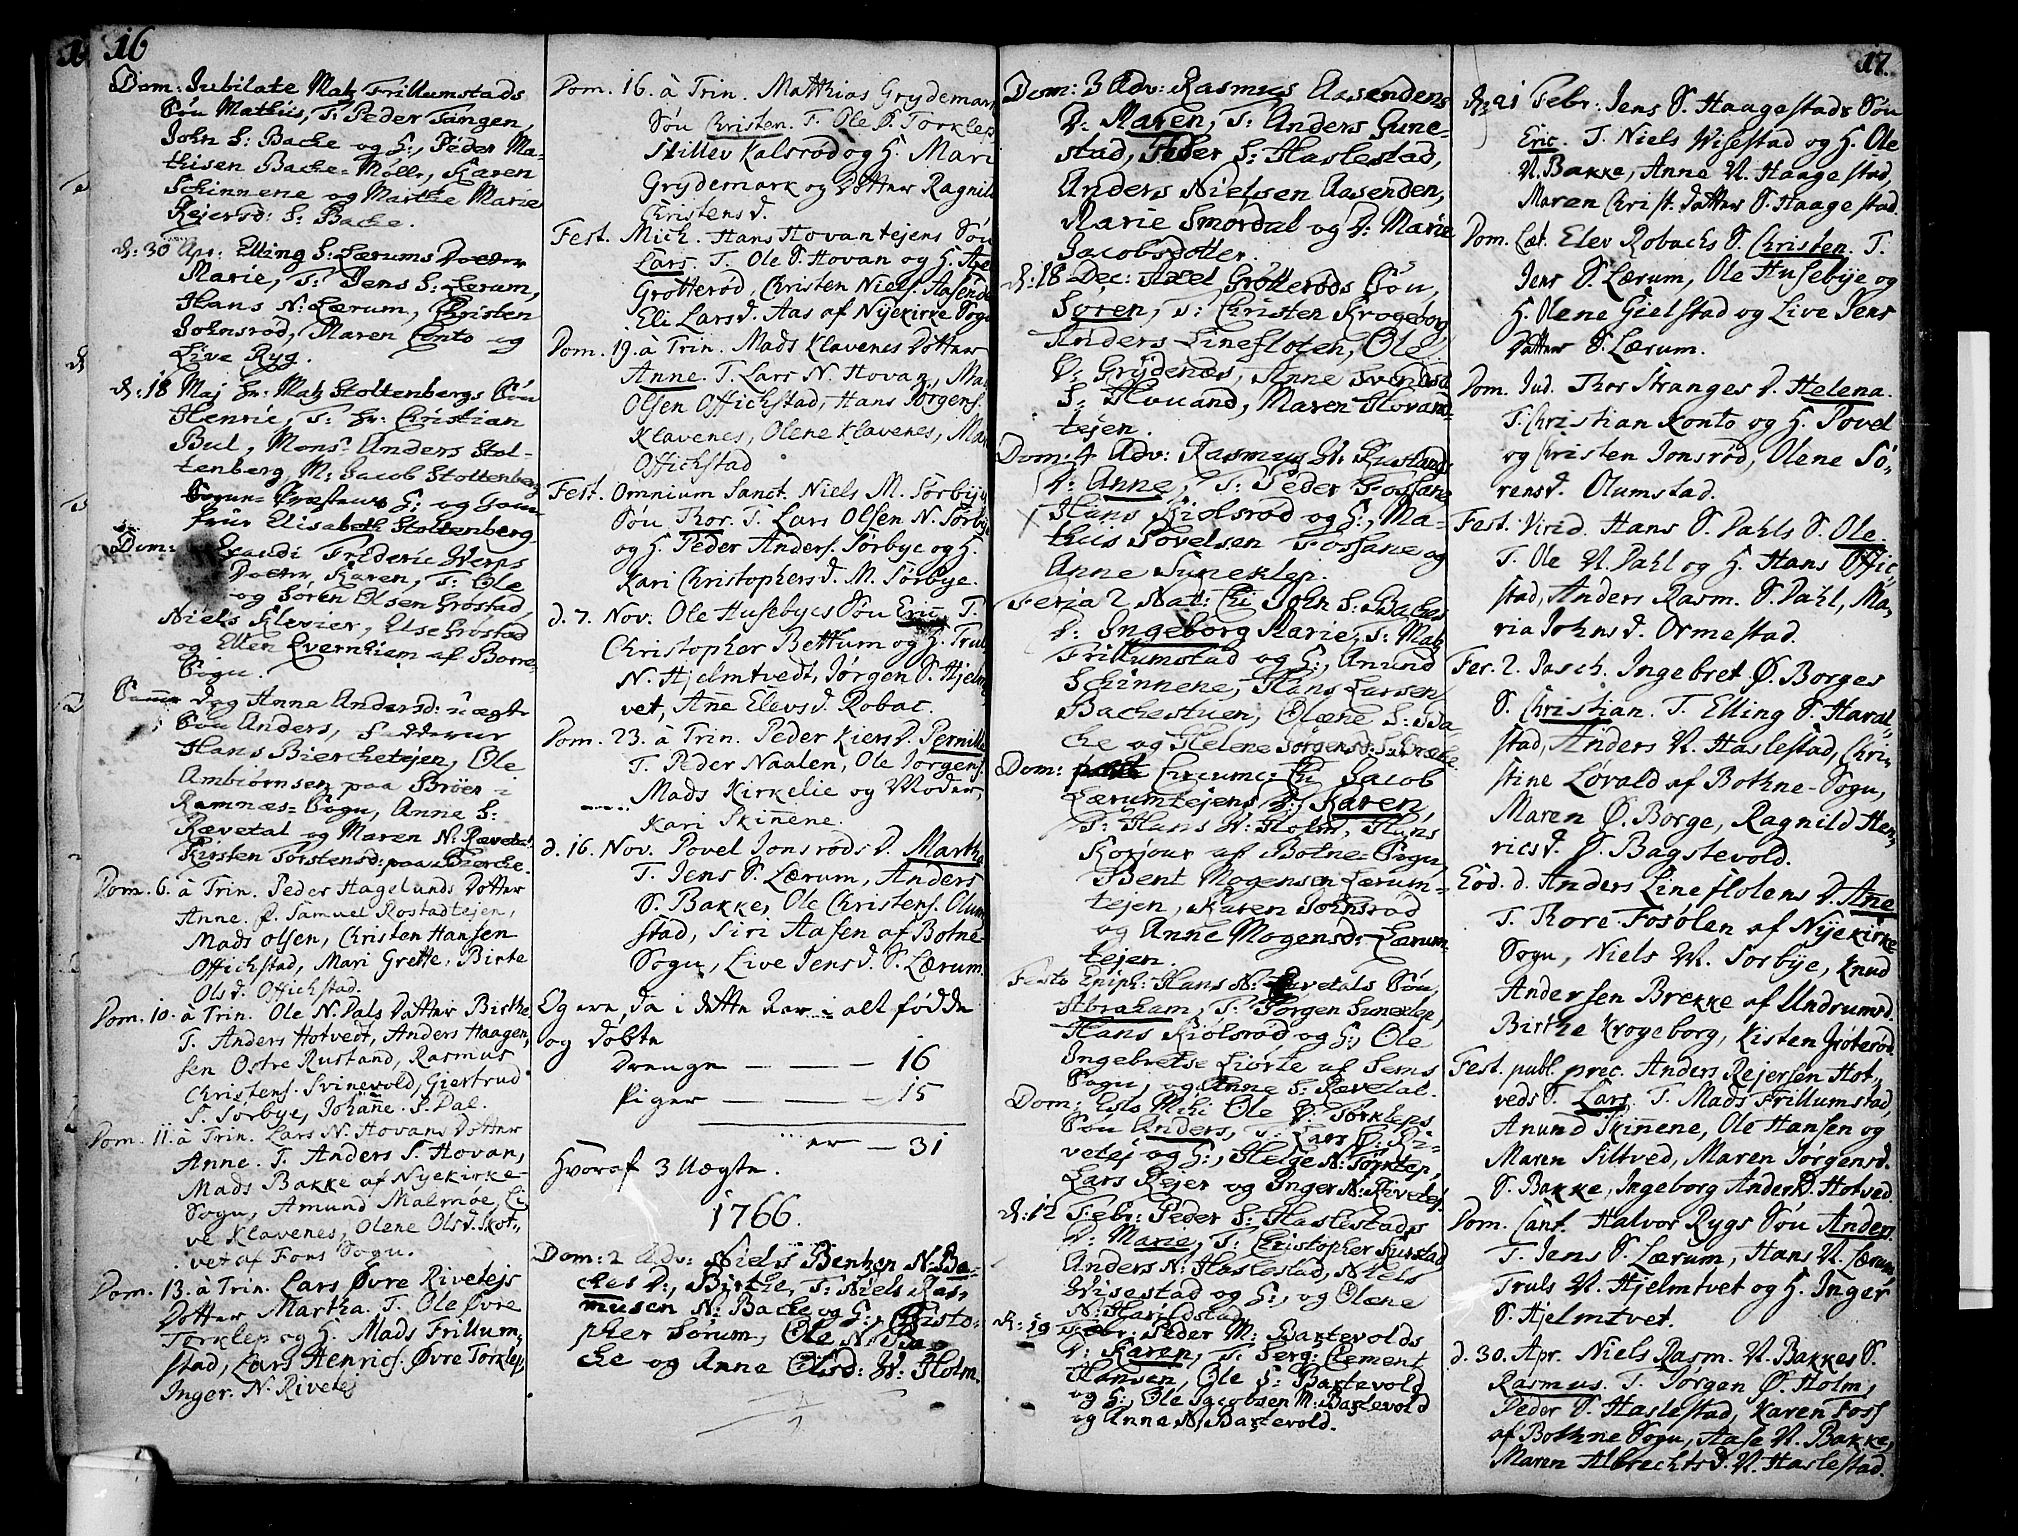 16
Dom: Jubilate Matz Trillumstads
Søn Mathis, T: Peder Tangen,
John S: Backe og H:, Peder Ma-
thisen Backe-Mølle, Karen
Schinnene og Marthe Marie
Rejersd: S: Backe.
d: 30 Apr: Elling S: Lærums Dotter
Marie, T: Jens S: Lerum,
Hans N: Lærum, Christen
Johnsrød, Maren Conto og
Live Ryg.
d: 18 Maj Hr: Matz Stoltenbergs Søn
Henric, T: Hr: Christian
Bul, Monsr Anders Stol-
tenberg M: Jacob Stoltenberg
Sogne-Præstens H: og Jom-
frue Elisabeth Stoltenberg
Dom: Exaudi Frideric Werps
Dotter, Karen, T: Ole
og Søren Olsen Grøstad,
Niels Klevier, Else Grøstad
og Ellen Evernhiem af Borre
Sogn.
Samme Dag Anne Andersd: uægte
Søn Anders, Fadderne
Hans Bierchetejen, Ole
Ambiørnsen paa Brøer i
Ramnæs-Sogn, Anne S:
Rævetal og Maren N: Rævetal
Kirsten Torstensd: paa Bierche.
Dom. 6. à Trin. Peder Hagelunds Dotter
Anne. T. Samuel Rostadtejen,
Mads Olsen, Christen Hansen
Offickstad, Mari Grette, Birte
Olsd. Offickstad.
Dom. 10. à Trin. Ole N. Dals Datter Birthe
T. Anders Hotvedt, Anders Haagen-
sen Østre Rustand, Rasmus
Christens. Svinevold, Giertrud
S. Sørbye, Johanne S. Dal.
Dom. 11. à Trin. Lars N. Hovans Dotter
Anne. T. Anders S. Hovan,
Mads Bakke af Nyekirke
Sogn, Amund Malmøe, Li-
ve Klavenes, Olene Olsd. Skot-
vet af Fons Sogn.
Dom. 13. à Trin. Lars Øvre Rivetejs
Dotter Martha. T. Ole Øvre
Torklep og H. Mads Frillum-
stad, Lars Henrics. Øvre Torklep,
Inger N. Rivetej
Dom. 16. à Trin. Matthias Grydemark
Søn Christen. T. Ole S. Torklep
Ditlev Kalsrød og H. Mari
Grydemark og Dotter Ragnild
Christensd.
Fest. Mich. Hans Hovantejens Søn
Lars. T. Ole S. Hovan og H. Axel
Grotterød, Christen Niels. Aasende
Eli Larsd. Aas af Nyekirke Sogn
Dom. 19. à Trin. Mads Klavenes Dotter
Anne. T. Lars N. Hovan, Mads
Olsen Offickstad, Hans Jørgens.
Klavenes, Olene Klavenes, Mari
Offickstad
Fest. Omnium Sanct. Niels M. Sørbyes
Søn Thor. T. Lars Olsen N. Sørbye
og H. Peder Anders. Sørbye og H.
Kari Christophersd. M. Sørbye.
d. 7. Nov. Ole Husebyes Søn Eric T.
Christopher Bettum og H. Truls
N. Hjelmtvedt, Jørgen S. Hjelm-
vet, Ane Elevsd. Robac.
Dom. 23. à Trin. Peder Kiers D. Pernille
T. Peder Naalen, Ole Jørgens.
Mads Kirkelie og Moder,
Kari Skinnene.
d. 16. Nov. Povel Jonsrøds D. Martha
T. Jens S. Lærum, Anders
S. Bakke, Ole Christens. Olum-
stad, Siri Aasen af Botne
Sogn, Live Jensd. S. Lærum.
Og ere, da i dette Aar i alt fødde
og døbte
Drenge — — — 16
Piger — — — 15
er — 31
Hvoraf 3 Uægte.
1766.
Dom: 2 Adv: Niels Bentzen N. Ba-
ckes D:, Birthe, T: Niels Ras-
musen N: Backe og H:, Christo-
pher Sørum, Ole N: Ba-
cke og Anne Olsd: W: Holm.
17.
Dom: 3 Adv: Rasmus Aasendens
D: Maren, T: Anders Gune-
stad, Peder S: Haslestad,
Anders Nielsen Aasenden,
Marie Smordal og D: Marie
Jacobsdotter.
d: 18 Dec: Axel Grotterøds Søn,
Søren, T: Christen Krogeborg
Anders Linefloten, Ole
D: Grydenæs, Anne Svendsd
S: Houand, Maren Hovand-
tejen.
Dom: 4 Adv: Rasmus W: Ruslands
D: Anne, T: Peder Fossane
Hans Kiolsrød og H:, Ma-
thus Povelsen Fossane og
Anne Suneklep.
Feria 2 Nat: Chi John S: Backes
D: Ingeborg Marie, T: Matz
Frillumstad og H:, Anund
Schinnene, Hans Larsen
Bachestuen, Olæne S: Ba-
cke og Helene Jørgensd:
Dom: Circumc: Chi Jacob
Lærumtejens D: Karen,
T: Hans W: Holm, Hans
Korjour af Botne-Sogn,
Bent Mogensen Lærum-
tejen, Karen Johnsrød
og Anne Mogensd: Lærum-
tejen.
Festo Epiph: Hans N: Rævetals Søn,
Abraham, T: Jørgen Suneklep,
Hans Kiolsrød og H:, Ole
Ingebretse Liorte af Sems
Sogn, og Anne S: Rævetal.
Dom: Esto Mihi Ole D: Torkleps
Søn Anders, T: Lars D: Ri-
vetej og H:, Helge N: Torklep,
Lars Rejer og Inger N: Rivetej.
d: 12 Febr: Peder S: Haslestads
D: Marie, T: Christopher Russtad
Anders N: Haslestad, Niels
Wisestad og H:, og Olæne
N: Haroldstad.
d: 19 Febr: Peder M: Baxtevolds
D: Karen, T: Serg: Clement
Hansen, Ole S: Baxtevold
og H:, Ole Jacobsen M: Baxtevold
og Anne N: Baxtevold.
d. 21 Febr: Jens S. Haagestads Søn
Eric. T. Niels Wisestad og H. Ole
N. Bakke, Anne N. Haagestad,
Maren Christ. Datter S. Haagestad.
Dom. Læt. Elev Robachs S. Christen. T.
Jens S. Lærum, Ole Husebye og
H. Olene Gielstad og Live Jens
Datter S. Lærum.
Dom. Jud. Thor Stranges D. Helena.
T. Christian Konto og H. Povel
og Christen Jonsrød, Olene Sø-
rensd. Olumstad.
Fest. Virid. Hans S. Dahls S. Ole.
T. Ole N. Dahl og H. Hans Offic-
stad, Anders Rasm. S. Dahl, Ma-
ria Johnsd. Ormestad.
Fer. 2. Pasch. Ingebret Ø. Borges
S. Christian. T. Elling S. Haral-
stad, Anders N. Haslestad, Chri-
stine Løvald af Bothne-Sogn,
Maren Ø. Borge, Ragnild Hen-
ricsd. S. Bagstevold.
Eod. d. Anders Lineflotens D. Ane
T. Thore Fosølen af Nyekirke
Sogn, Niels N. Sørbye, Knud
Andersen Brekke af Undrumsd.
Birthe Krogeborg, Kisten Grøterød
Fest. publ. prec. Anders Rejersen Hot-
veds S. Lars. T. Mads Frillumstad,
Anund Skinnene, Ole Hansen og
Maren Siltved, Maren Jørgensd.
S. Bakke, Ingeborg Andersd. Hotved
Dom. Cant. Halvor Rygs Søn Anders.
T. Jens S. Lærum, Hans N. Lærum,
Truls N. Hjelmtvet og H. Inger
S. Hjelmtvet.
d. 30. Apr. Niels Rasm. N. Bakkes S.
Rasmus. T. Jørgen Ø. Holm,
Peder S. Haslestad, Karen Foss
af Bothne Sogn, Aase N. Bakke,
Maren Albrechtsd. N. Haslestad.